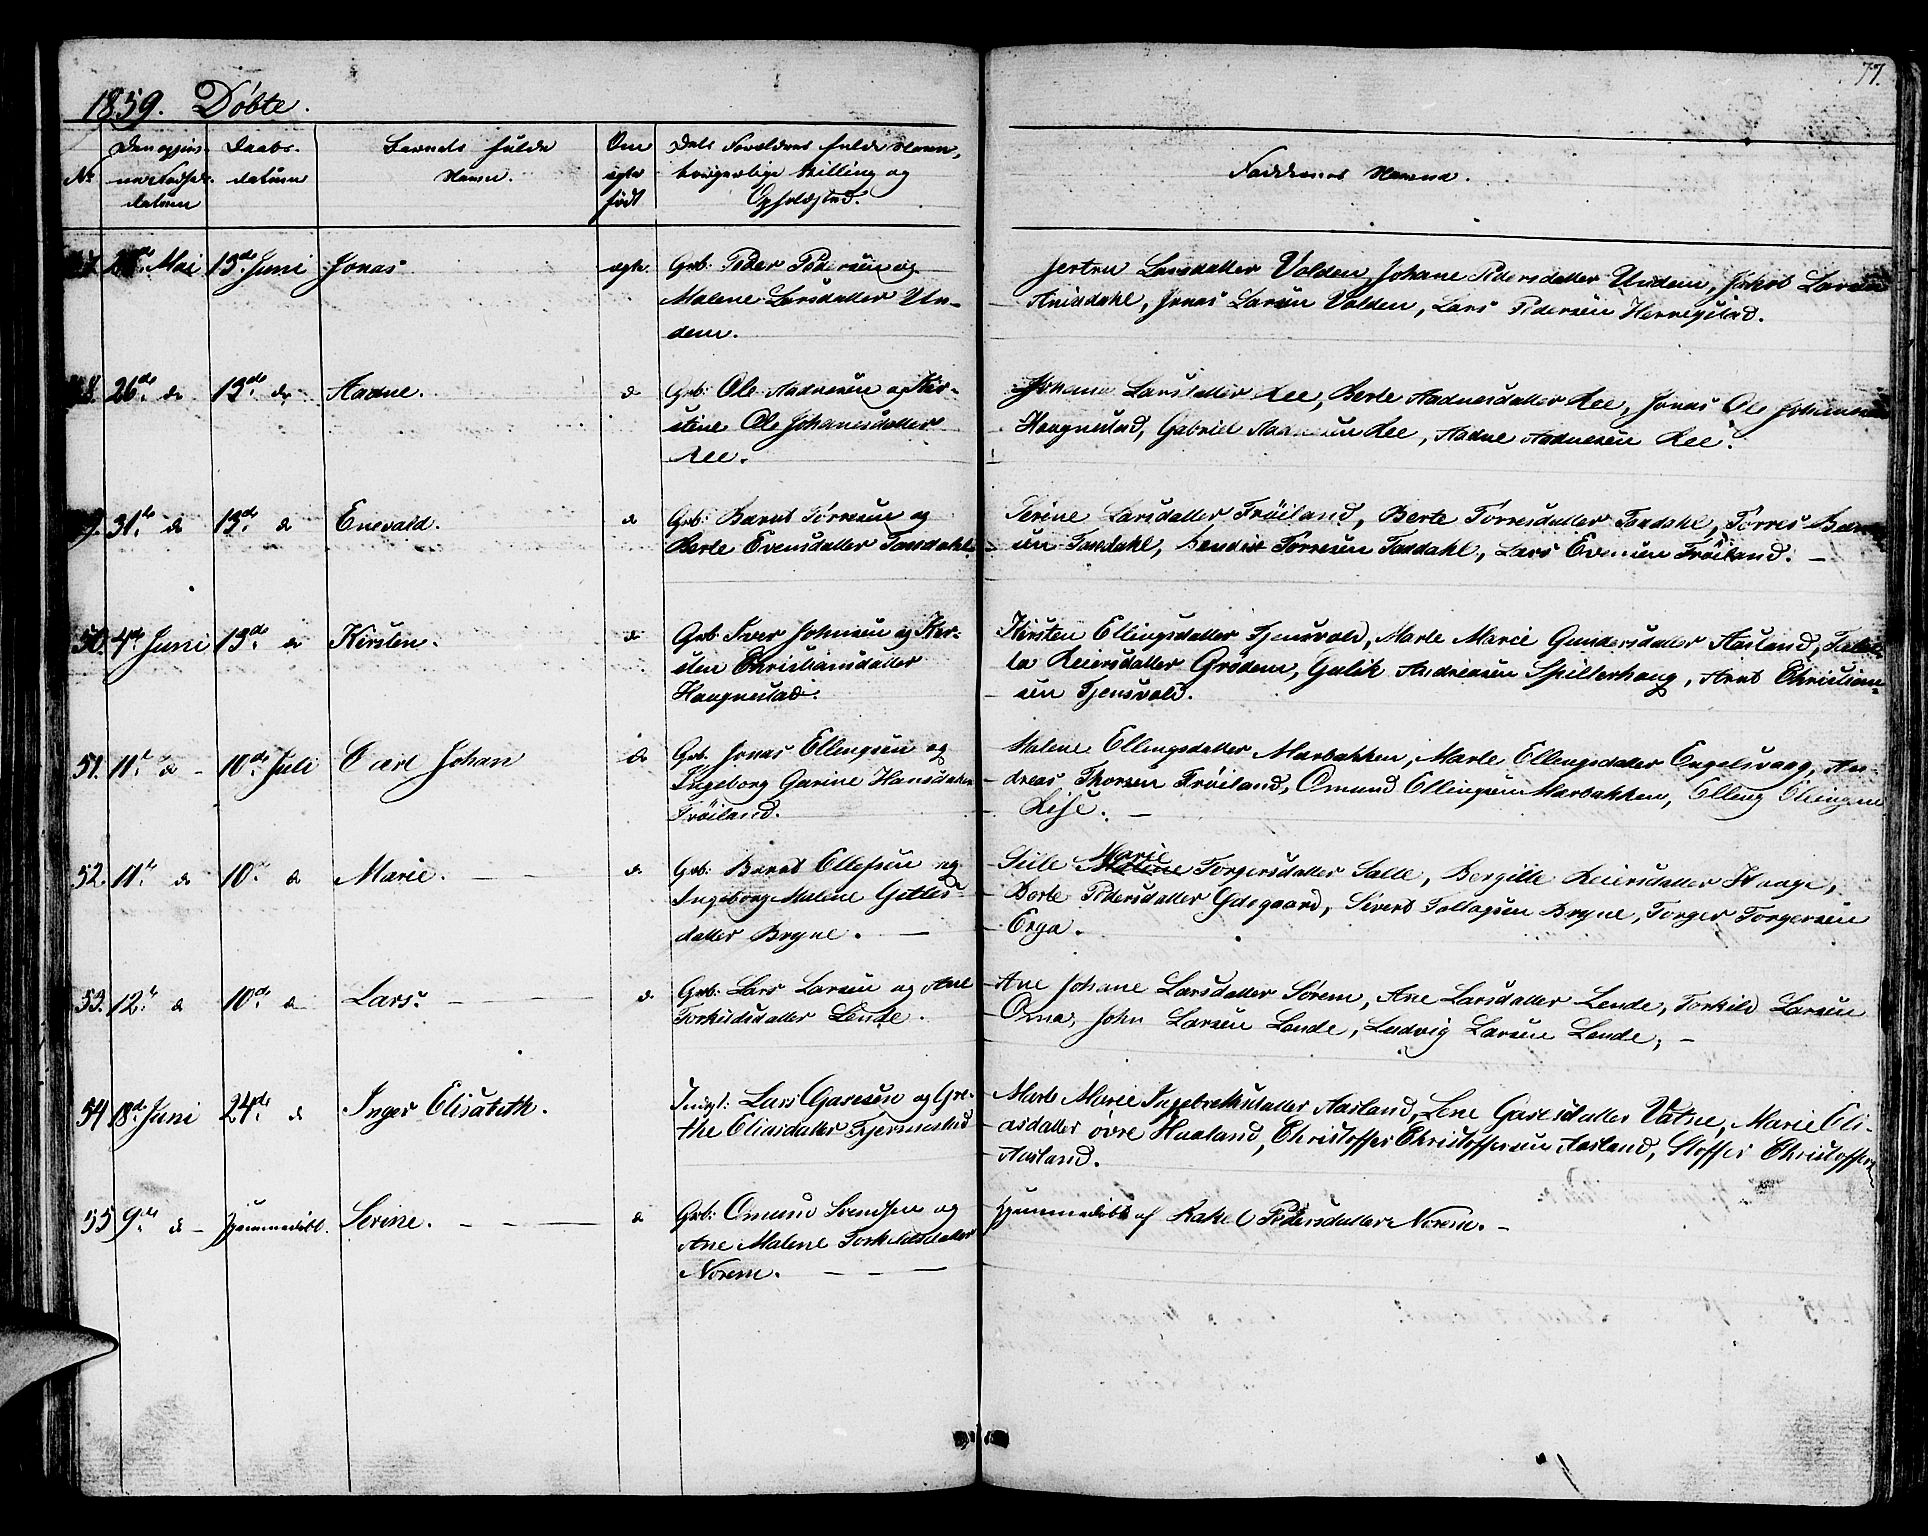 77.
1859. Døbte.
No
Den opgivne Fødselsdatum
Daabsdatum
Barnets fulde Navn.
Om ægte født
Dets Forældres fulde Navn, borgerlige Stilling og Opholdsted.
Faddernes Navne.
Mai 13de Juni Jonas ægte Grb: Peder Pedersen og
Malene Larsdatter Un-
dem.
Larsdatter Volden, Johane Pedersdatter Undem, Jakob Larsen
Jonas Larsen Volden, Lars Pedersen Hervigstad.
8. 26de do 13de do Aadne. do Grb: Ole Aadnesen og Kir-
stine Ole Johanesdatter
Lee.
Johane Larsdatter Lee, Berte Aadnesdatter Lee, Jonas Ole
Haugnestad, Gabriel Aadnesen Lee, Aadne Aadnesen Lee.
9. 31te do 13de do Enevald. do Grb: Barnt Tørresen og
Berte Evensdatter Taxdahl.
Serine Larsdatter Frøiland, Berte Tørresdatter Taxdahl, Tørres Barnt-
sen Taxdahl, Tørresen Taxdahl, Lars Evensen Frøiland. —
50. 4de Juni 13de do Kirsten. do Grb: Iver Johnsen og Kir-
sten Christiansdatter
Haugnestad.
Kirsten Ellingsdatter Tjensvold, Marte Marie Gundersdatter Aasland,
ta Reiersdatter Grødem, Gulik Andreasen Spilterhaug, Arnt Christian-
sen Tjensvold.
51. 11te do — 10de Juli Carl Johan do Grb. Jonas Ellingsen og
Ingeborg Garine Hansdatter
Frøiland.
Malene Ellingsdatter Marbakken, Marte Ellingsdatter Engelsvaag, An-
dreas Thorsen Frøiland, Omund Ellingsen Marbakken, Elling Ellingsen
Lise. —
52. 11te do 10de do Marie. — do Grb: Barnt Ellefsen og
Ingeborg Malene Gitles-
datter Bryne. —
Siile Marie Malene Torgersdatter Salte, Bergitte Reiersdatter Hauge,
Dorte Pedersdatter Gdegaard, Sivert Tollagsen Bryne, Torger Torgersen
Erga.
53. 12te do 10de do Lars. — do Grb: Lars Larsen og Ane
Torkildsdatter Lende.
Ane Johane Larsdatter Sørem, Ane Larsdatter Lende, Torkild Larsen
Oma, John Larsen Lende, Ludvig Larsen Lende, —
54 18de Juni 24de do Inger Elisabeth. Indst: Lars Garesen og Gre-
the Eliasdatter Fjermestad
Marte Marie Ingebretsdatter Aasland, Lene Garesdatter Vatne, Marie Eli-
asdatter øvre Haaland, Christoffer Christoffersen Aasland, Stoffer Christoffersen
Aasland.
55 9de do — Hjemmedøbt. Serine. — do Grb: Omund Svendsen og
Ane Malene Torkildsdatter
Norem. —
Hjemmedøbt af Rakel Pedersdatter Norem. —